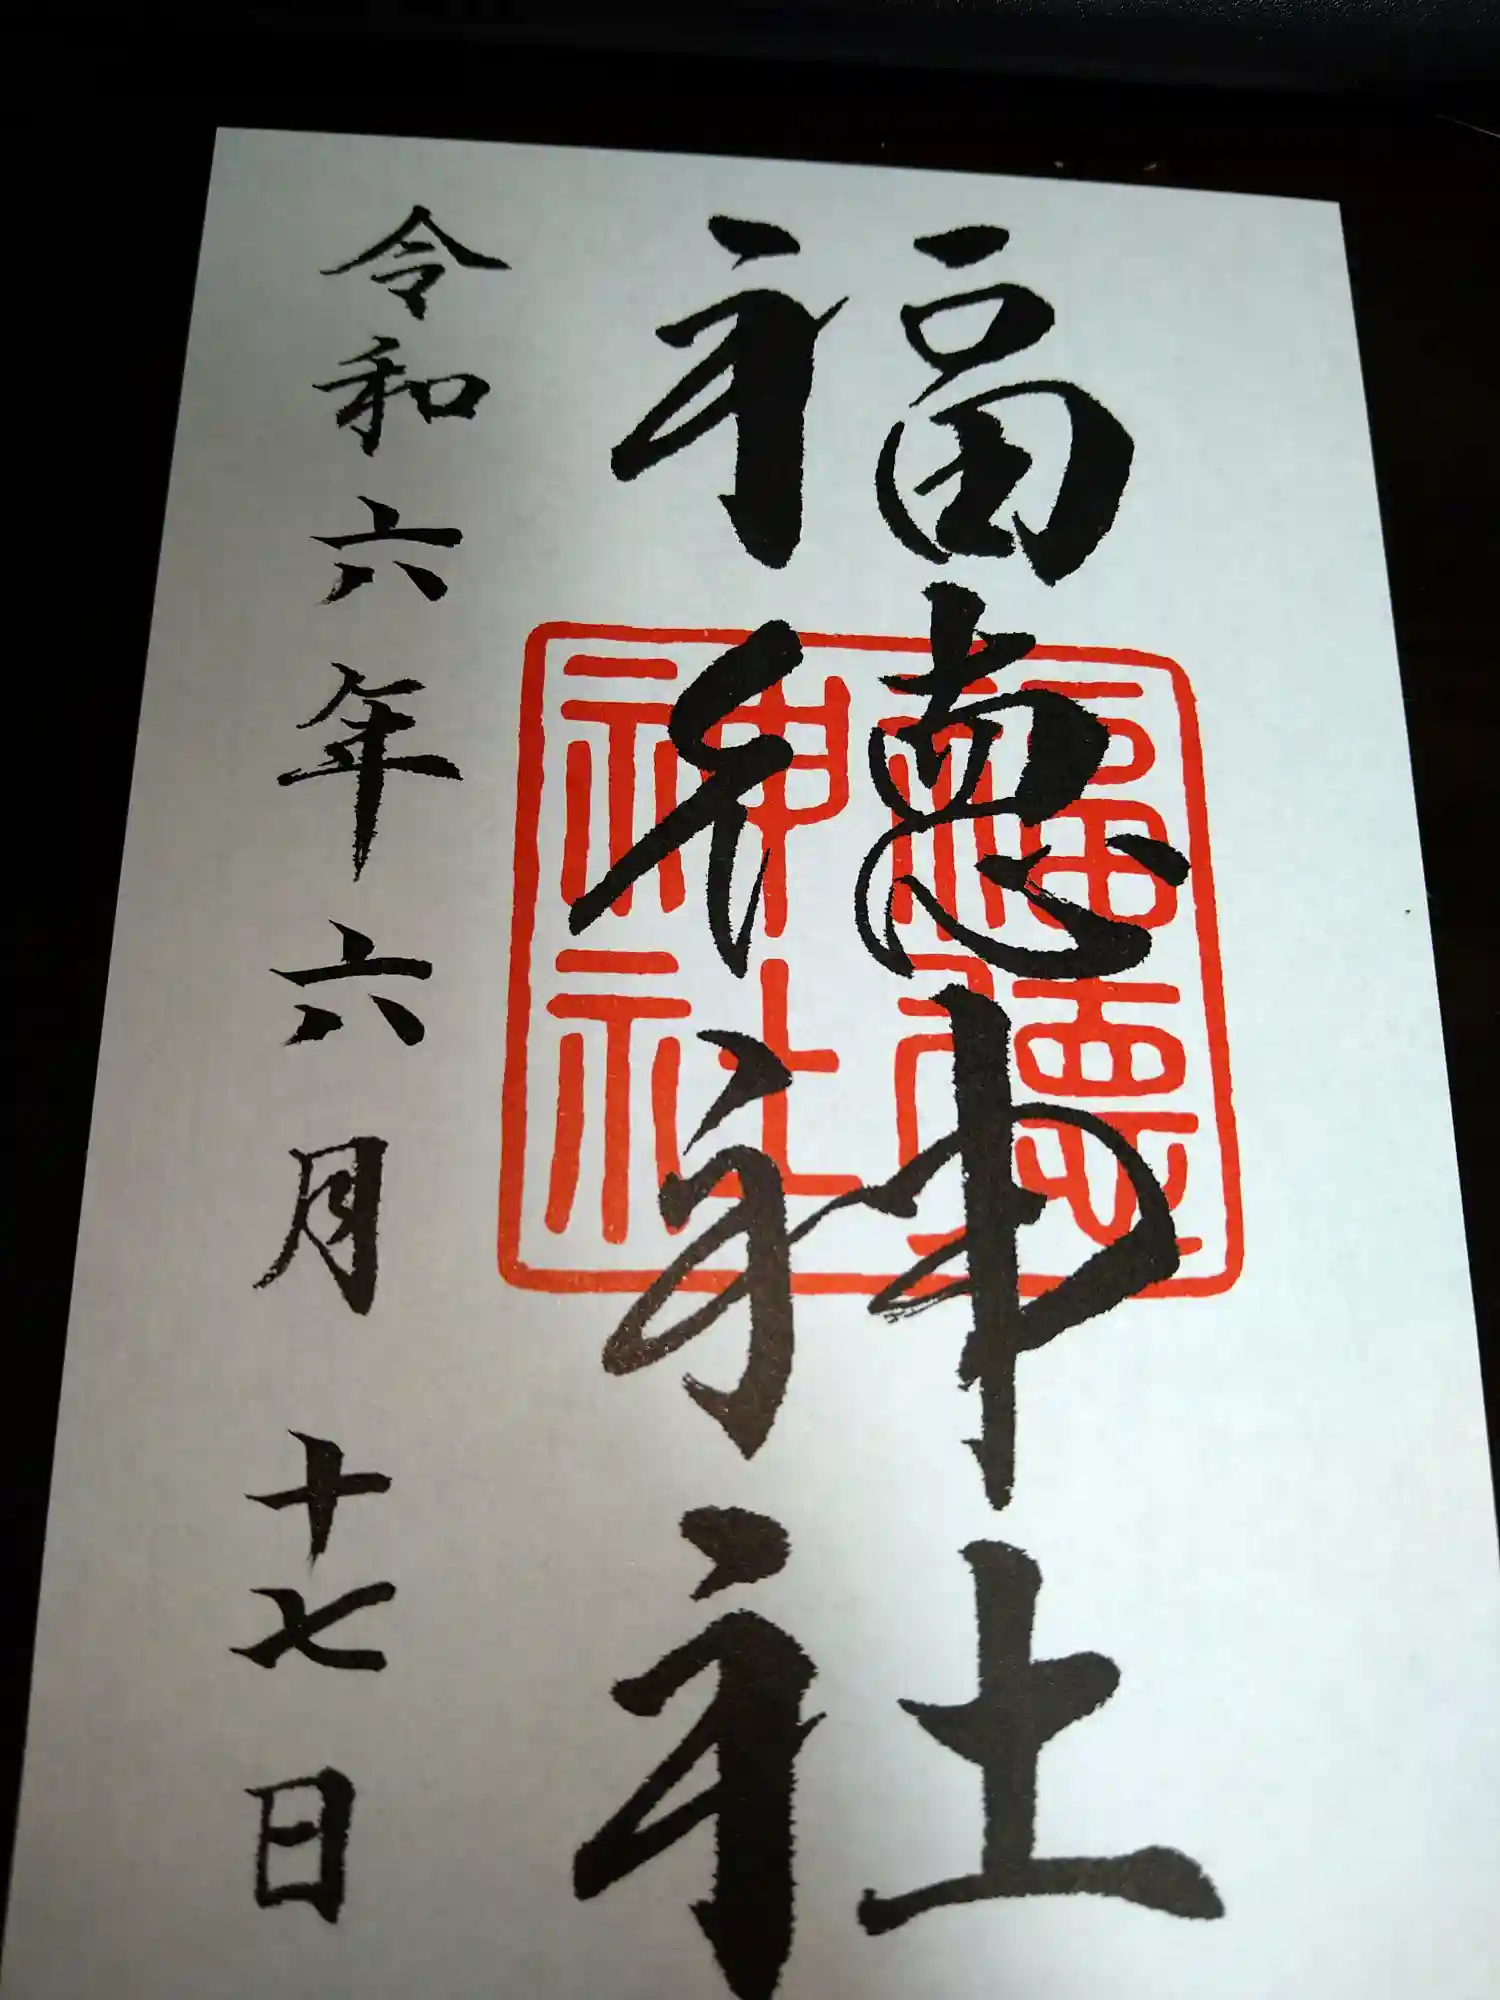 福徳神社
福徳
神社
令和六年六月十七日